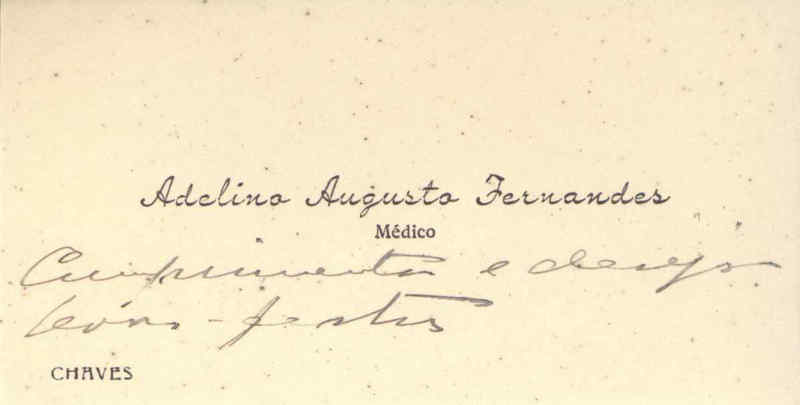 Adelino Augusto Fernandes
Médico
Cumprimenta e deseja
bôas-festas
CHAVES